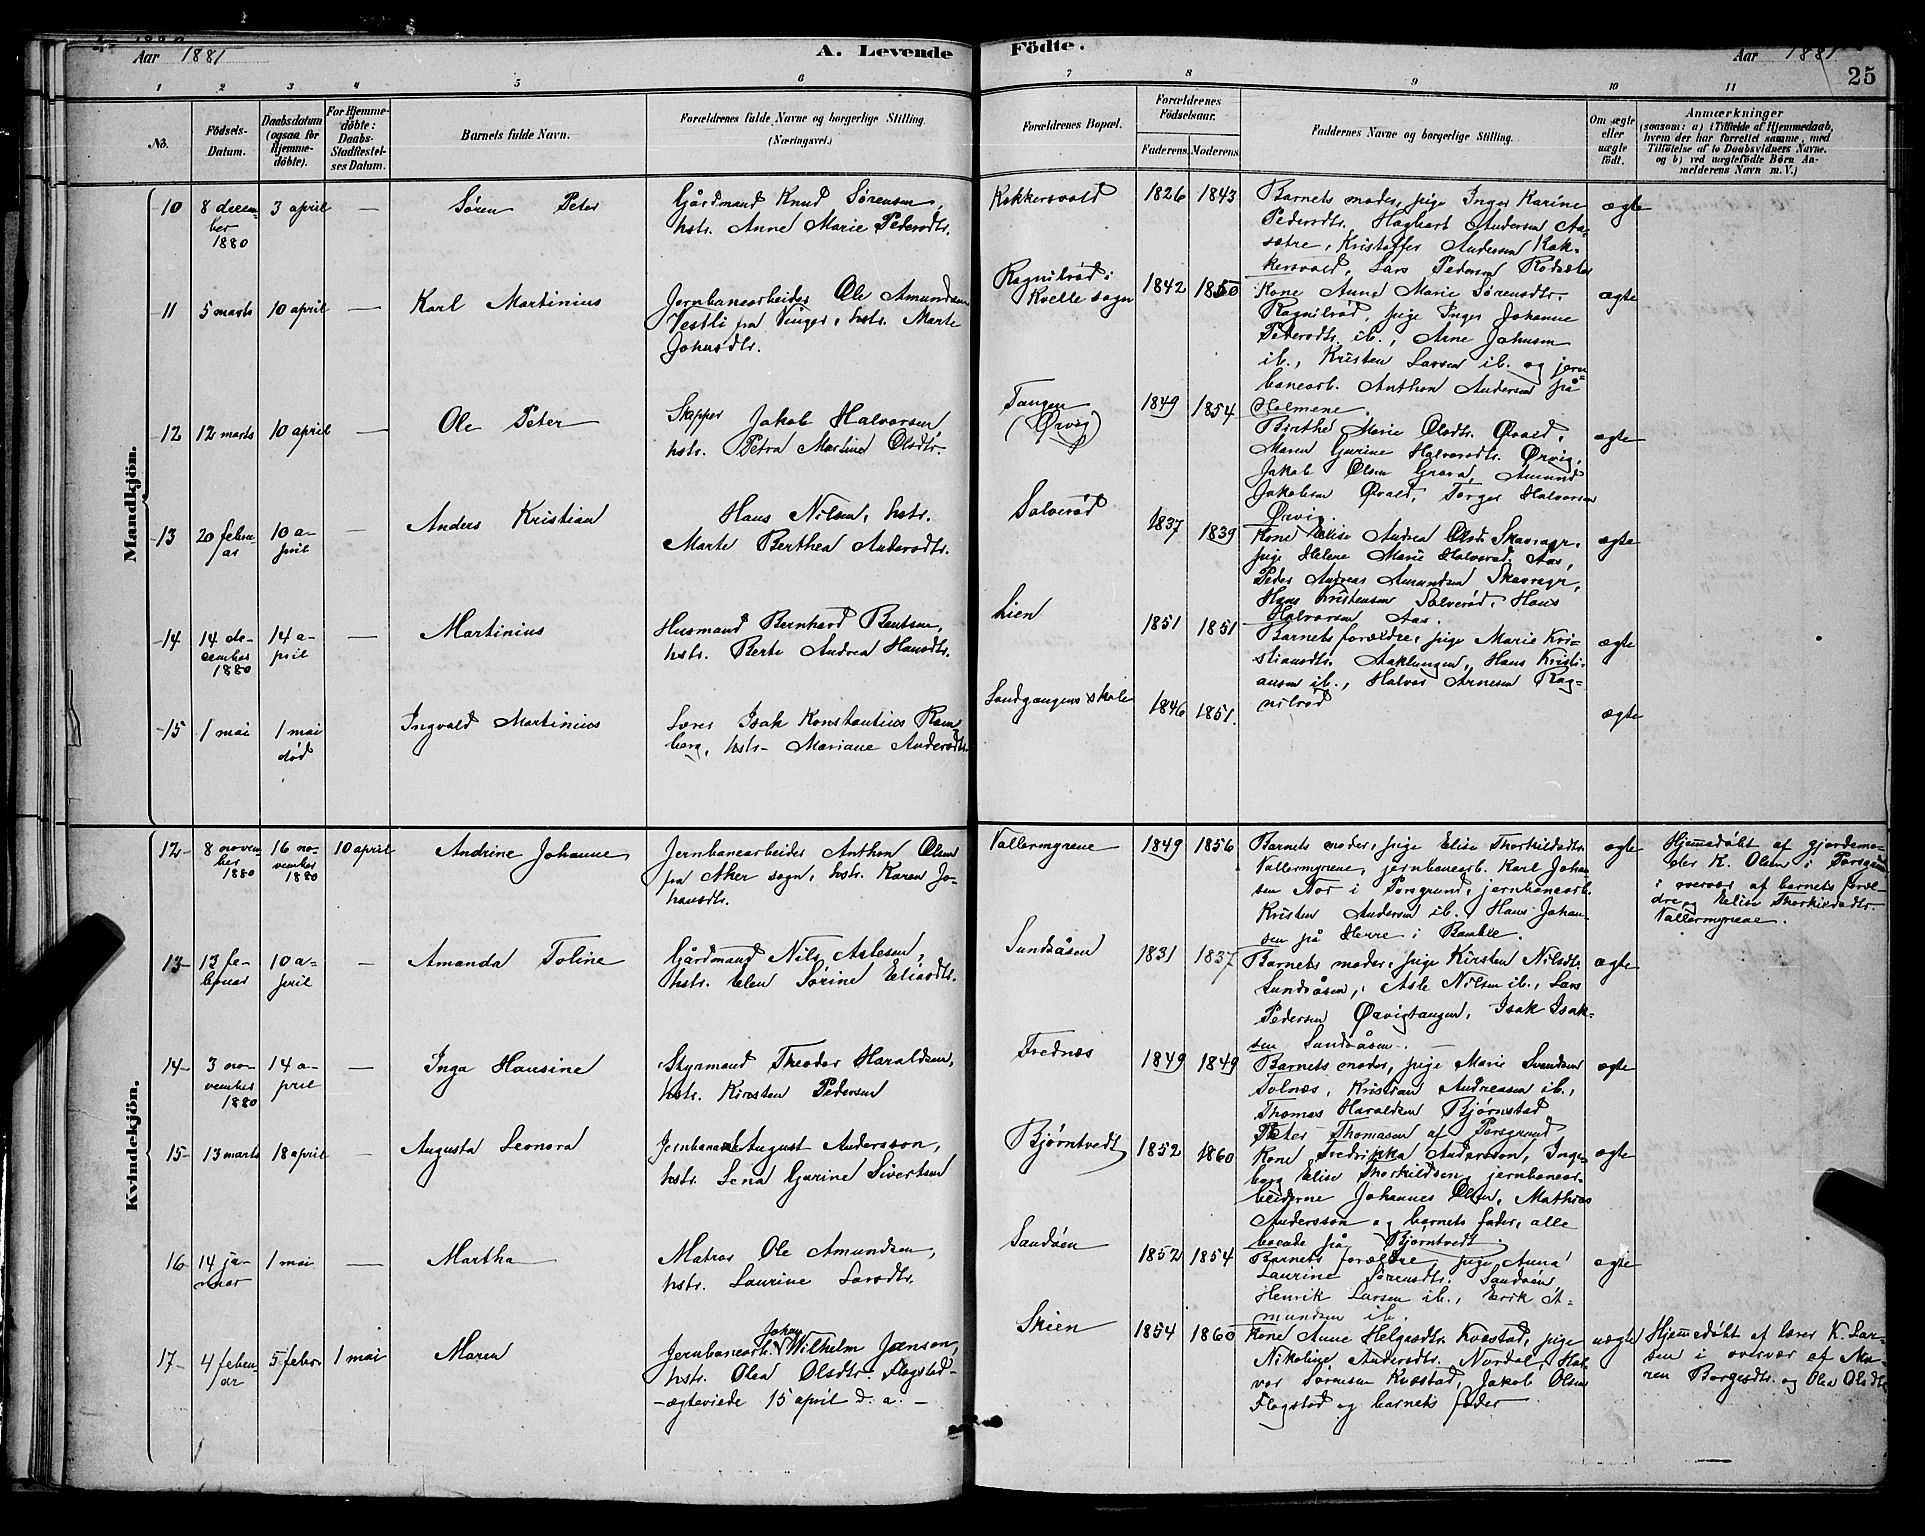 Aar 1881
A. Levende
Födte.
Aar 1881
25
1 2 3 4 5 6 7 8 9 10 11
No.
Födsels-Datum.
Daabsdatum (ogsaa for Hjemmedöbte).
For Hjemmedöbte: Daabs-Stadfæstelses Datum.
Barnets fulde Navn.
Forældrenes fulde Navne og borgerlige Stilling. (Næringsvei.)
Forældrenes Bopæl.
Forældrenes Födselsaar.
Faderens. Moderens.
Faddernes Navne og borgerlige Stilling.
Om ægte eller uægte födt.
Anmærkninger
(saasom: a) i Tilfælde af Hjemmedaab, hvem der har forrettet samme, med Tilföielse af to Daabsvidners Navne. og b) ved uægtefödte Börn Anmelderens Navn m. V.)
Mandkjön.
10 8 december 1880 3 april — Søren Peter
Gårdmand Knud Sørensen,
hstr. Anne Marie Pedersdtr.
Kokkersvold 1826 1843
Barnets moder, pige Inger Karine
Pedersdtr. Hagbart Andersen Aa-
setre, Kristoffer Andersen Kok-
kersvold, Lars Pedersen Rødseter
ægte
11 5 marts 10 april — Karl Martinius
Jernbanearbeider Ole Amundsen
Vestli fra Vinger, hstr. Marte
Johnsdtr.
Ragnilrød i
Kvelle sogn 1842 1850
Kone Anne Marie Sørensdtr.
Ragnilrød, pige Inger Johanne
Pedersdtr. ib., Arne Johnsen
ib., Kristen Larsen ib. og jern-
banearb. Anthon Andersen på
Holmene.
ægte
12 12 marts 10 april — Ole Peter
Skipper Jakob Halvorsen
hstr. Petra Martine Olsdtr.
Tangen
(Ørvig) 1849 1854
Birthe Marie Olsdtr. Øvald,
Maren Gurine Halvorsdtr. Ørvig,
Jakob Olsen Grava, Amund
Jakobsen Øvald, Torger Halvorsen
Ørvig.
ægte
13 20 februar 10 april — Anders Kristian
Hans Nilsen, hstr.
Marte Berthea Andersdtr.
Solverød 1837 1839
Kone Elise Andrea Olsdtr. Skavragr.
pige Helene Marie Halvorsd. Aas,
Peder Andreas Amundsen Skavragr,
Hans Kristensen Solverød, Hans
Halvorsen Aas.
ægte
14 14 december 1880 14 april — Martinius
Husmand Bernhard Bentsen,
hstr. Berte Andrea Hansdtr.
Lien 1851 1851
Barnets forældre, pige Marie Kri-
stiansdtr. Aaklungen, Hans Kristi-
ansen ib., Halvor Arnesen Rag-
nilrød
ægte
15 1 mai 1 mai død Ingvald Martinius
Lærer Isak Konstantius Ram
berg, hstr. Mariane Andersdtr.
Sandgangens skole 1846 1851.
ægte
Kvindekjön.
12 8 november 1880 16 november 1880 10 april Andrine Johanne
Jernbanearbeider Anthon Olsen
fra Aker sogn, hstr. Karen Jo-
hansdtr.
Vallermyrene 1849 1856
Barnets moder, pige Elise Thorkildsdtr.
Vallermyrene, jernbanearb. Karl Johan-
sen Nor i Porsgrund, jernbanearb.
Kristen Andersen ib. Hans Johan-
sen på Herre i Bamble.
ægte
Hjemmedøbt af gjordemo-
der K. Olsen i Porsgrund
i overvær af barnets foræl-
dre og Elise Thorkildsdtr.
Vallermyrene.
13 13 februar 10 april — Amanda Toline
Gårdmand Nils Aslesen,
hstr. Elen Sørine Eliasdtr.
Sundsåsen 1831 1837
Barnets moder, pige Kirsten Nilsdtr.
Sundsåsen, Asle Nilsen ib., Lars
Pedersen Ørvigtangen, Isak Isak-
sen Sundsåsen. —
ægte
14 3 november 1880 14 april — Inga Hansine
Styrmand Theodor Haraldsen,
hstr. Kirsten Pedersen
Frednæs 1849 1849
Barnets moder, pige Marie Svendsen
Tolnæs, Kristian Andreasen ib.,
Thomas Haraldsen Bjørnstad
Peter Thomasen af Porsgrund
ægte
15 13 marts 18 april — Augusta Leonora
Jernbanearb. August Andersson,
hstr. Lena Gurine Sivertsen
Bjørntvedt 1852 1860
Kone Fredrikka Andersson, Inge-
borg Elise Thorkildsen, jernbanear-
beiderne Johannes Olsen, Mathias
Andersson og barnets fader, alle
boende på Bjørntvedt.
ægte
16 14 januar 1 mai — Martha
Matros Ole Amundsen,
hstr. Laurine Larsdtr.
Sandøen 1852 1854
Barnets forældre, pige Anna
Laurine Sørensdtr. Sandøen
Henrik Larsen ib., Erik A-
mundsen ib.
ægte
17 4 februar 5 febr. 1 mai Maren
Jernbanearb. Johan Wilhelm Jansson,
hstr. Olea Olsdtr. Flogstad
— ægteviede 15 april d. a. —
Skien 1854 1860
Kone Anne Helgesdtr. Kvæstad, pige
Nikoline Andersdtr. Nordal, Hal-
vor Sørensen Kvæstad, Jakob Olsen
Flogstad og barnets fader
uægte
Hjemmedøbt af lærer K. Lar-
sen i overvær af Ma-
ren Borgesdtr. og Olea Olsdtr.